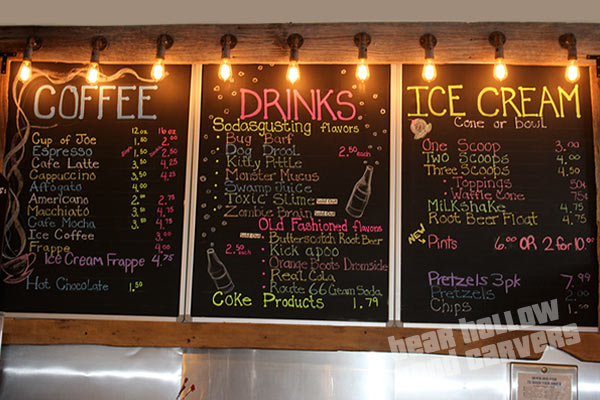 COFFEE
12 oz. 16 oz.
Cup of Joe 1.50 2.00
Espresso
Cafe Latte 3.50 4.25
Cappuccino 3.50 4.25
Affogato 4.50
Americano 2.00 2.75
Macchiato 3.75 4.75
Cafe Mocha 3.75 4.75
Ice Coffee 3.50
Frappe 4.00
Ice Cream Frappe 4.75
Hot Chocolate 1.50
DRINKS
Sodasgusting flavors
Bug Barf
Dog Drool 2.50 each
Kitty Pittle
Monster Mucus
Swamp Juice Sold Out
Toxic Slime Sold Out
Zombie Brain Sold Out
Old Fashioned flavors
Butterscotch Root Beer
2.50 each Kick apoo
Orange Boots Dromside
Real Cola
Route 66 Cream Soda
Coke Products 1.79
ICE CREAM
Cone or bowl
One Scoop 3.00
Two Scoops 4.00
Three Scoops 4.50
Toppings 50¢
Waffle Cone 75¢
Milkshake 4.75
Root Beer Float 4.75
NEW Pints 6.00 OR 2 for 10.00
Pretzels 3pk 7.99
Pretzels 2.00
Chips 1.50
bear hollow
wood carvers